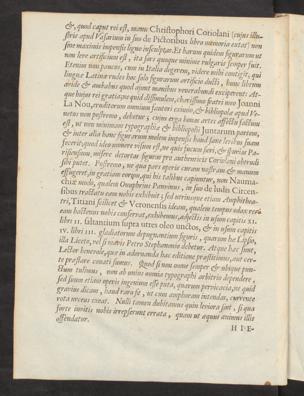 &, quod caput rei est, manu Christophori Coriolani (cujus illu-
stris apud Vasarium in suo de Pictoribus libro memoria extat) non
sine maximis impensis ligno insculptas. Et harum quidem figurarum ut
non leve artificium est, ita jure quoque minime vulgaris semper fuit.
Etenim non paucos, cum in Italia degerem, videre mihi contigit, qui
linguæ Latinæ rudes hoc solo figurarum artificio ducti, hunc librum
avide & ambabus quod ajunt manibus venerabundi exciperent. At-
que hujus rei gratias, quid dissimulem, charissimo fratri meo Joanni
La Nou, eruditorum omnium fautori eximio, & bibliopolæ apud
netus non postremo, debetur; cujus ergo hancce artis affectus factum
est, ut non minimum typographiæ & bibliopolii Juntarum partem,
& inter alia hanc figurarum molem impensis haud sane levibus suam
fecerit: quod ideo monere visum est, ne quis fucum sibi, è flaviæ Pa-
risiensium, misere detortas figuras pro authenticis Coriolani obtrudi
sibi putet. Postremo, ne qua pars operis curam nostram & manum
effugeret, in gratiam eorum, qui his talibus capiuntur, non Nauma-
chiæ modo, qualem Onuphrius Panvinius, in suo de ludis Circen-
sibus tractatu eam nobis exhibuit; sed utrinsque etiam Amphithea-
tri, Titiani scilicet & Veronensis ideam, qualem tempus edax rerum
eam hactenus nobis conservat, exhibemus, adjectis in usum capitis XI.
libri II. saltantium supra utres oleo unctos, & in usum capitis
IV. libri III. gladiatorum depugnantium figuris, quarum has Lipsio,
illa Liceto, vel si mavis Petro Stephanonio debetur. Atque hæc sunt,
Lector benevole, quæ in adornanda hac editione præstitimus, aut cer-
te præstare conati sumus. Quod si non autor semper & ubique pun-
ctum tulimus, non ab unius omnia typographi arbitrio dependere,
sed suum etiam operis ingenium esse puta, quarum pervicacia, ne quid
gravius dicam, haud raro fit, ut cum amphoram intendas, currente
rota urceus exeat. Nulli tamen dubitamus quin leviora sint, si qua
forte invitis nobis irrepserunt errata, quam ut æquus animus illis
offendatur.
HIE-